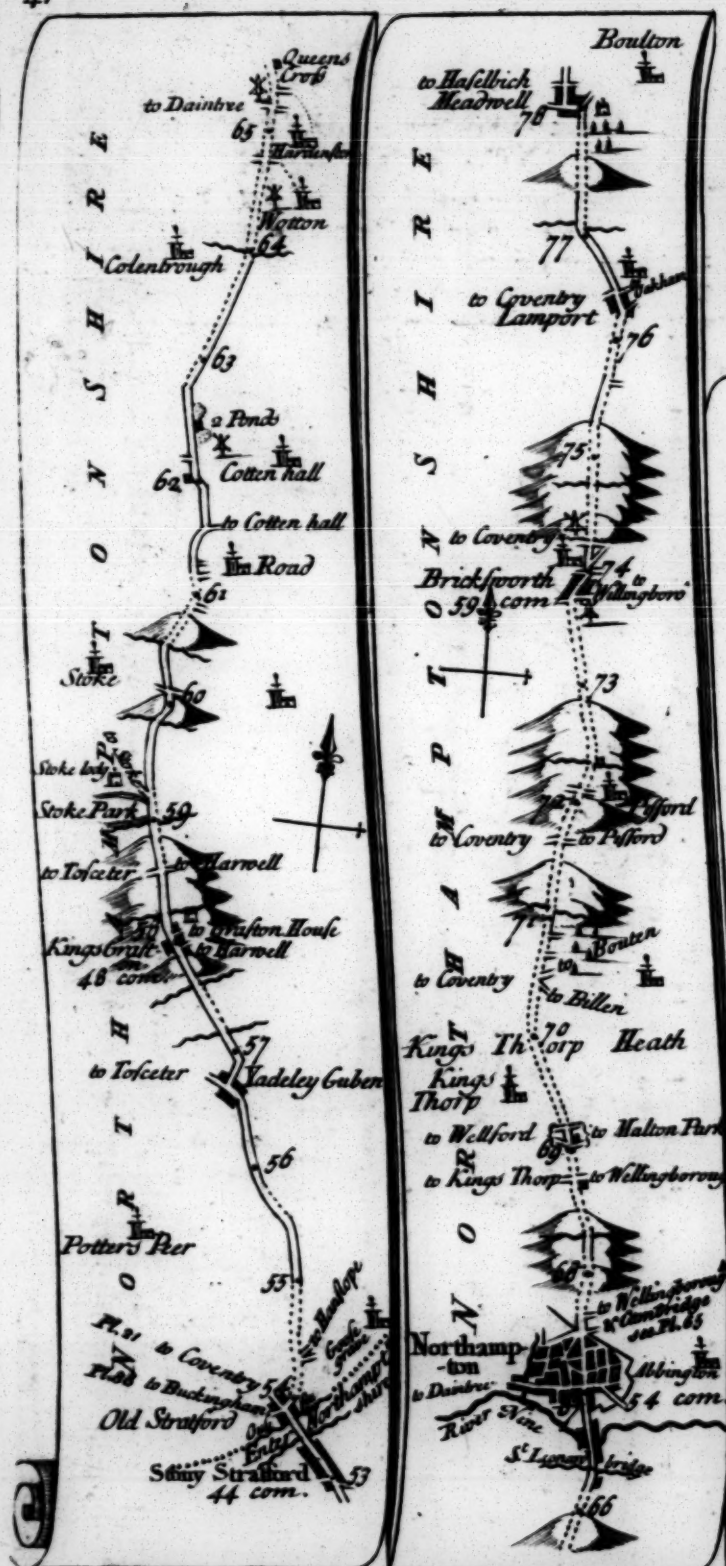 Queens
Cross
to Daintree
65
Wotton
64
Colentrough
63
2 Ponds
62
Cotten hall
to Cotten hall
Road
61
Stoke
60
Stoke lodg
Stoke Park
59
to Tosceter
to Harwell
to Grafton House
Kings Graft-
on
to Harwell
48 com.
57
to Tosceter
Yadeley Guben
56
Potters Peer
55
to Hanslope
Pl. 21
to Coventry
Pl. 86
to Buckingham
54
Northampt
shire
Old Stratford
Entr
Stony Stratford
44 com.
53
NORTHAMPTONSHIRE
Boulton
to Haselbich
Meadwell
78
77
to Coventry
Lamport
76
75
to Coventry
74
Bricksworth
to
Willingboro
59 com
73
72
Pisford
to Coventry
to Pisford
71
to
Bouten
to Coventry
to Billen
70
Kings Thorp Heath
Kings
Thorp
to Wellford
to Malton Park
69
to Kings Thorp
to Wellingboroug
68
to Wellingborough
& Cambridge
see Pl. 65
Northamp-
-ton
Abbington
to Daintree
54 com.
River Nine
bridge
66
NORTHAMPTONSHIRE